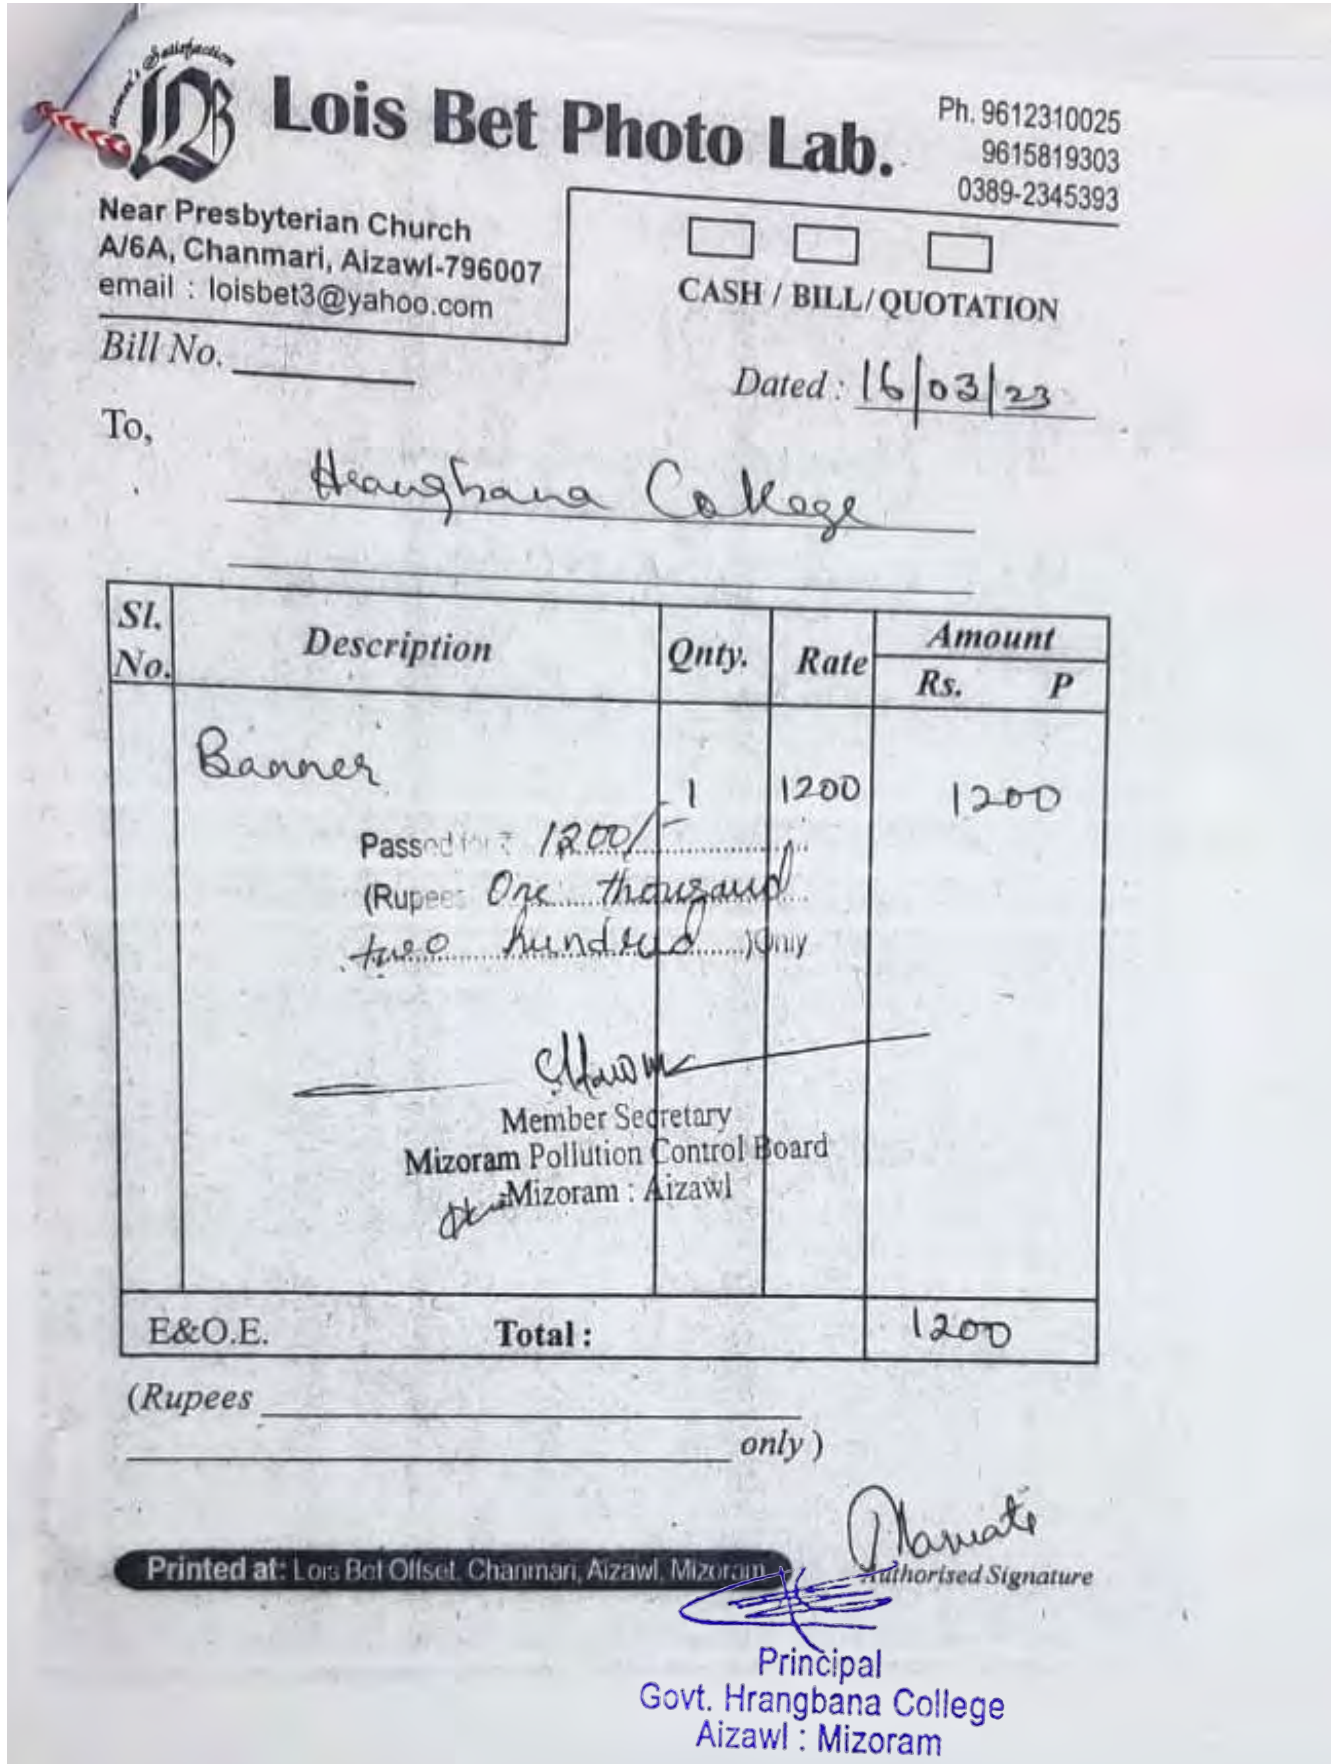 Satisfaction
Lois Bet Photo Lab.
Ph. 9612310025
9615819303
0389-2345393
Near Presbyterian Church
A/6A, Chanmari, Aizawl-796007
email : loisbet3@yahoo.com
CASH / BILL/QUOTATION
Bill No.
Dated : 16/03/23
To,
College
Sl. No. Description Qnty. Rate Amount
Rs. P
Banner 1 1200 1200
Passed for ₹ 1200/-
(Rupees One thousand
two hundred )Only
Member Secretary
Mizoram Pollution Control Board
Mizoram : Aizawl
E&O.E. Total : 1200
(Rupees
only )
Authorised Signature
Printed at: Lois Bet Offset, Chanmari, Aizawl, Mizoram
Principal
Govt. Hrangbana College
Aizawl : Mizoram